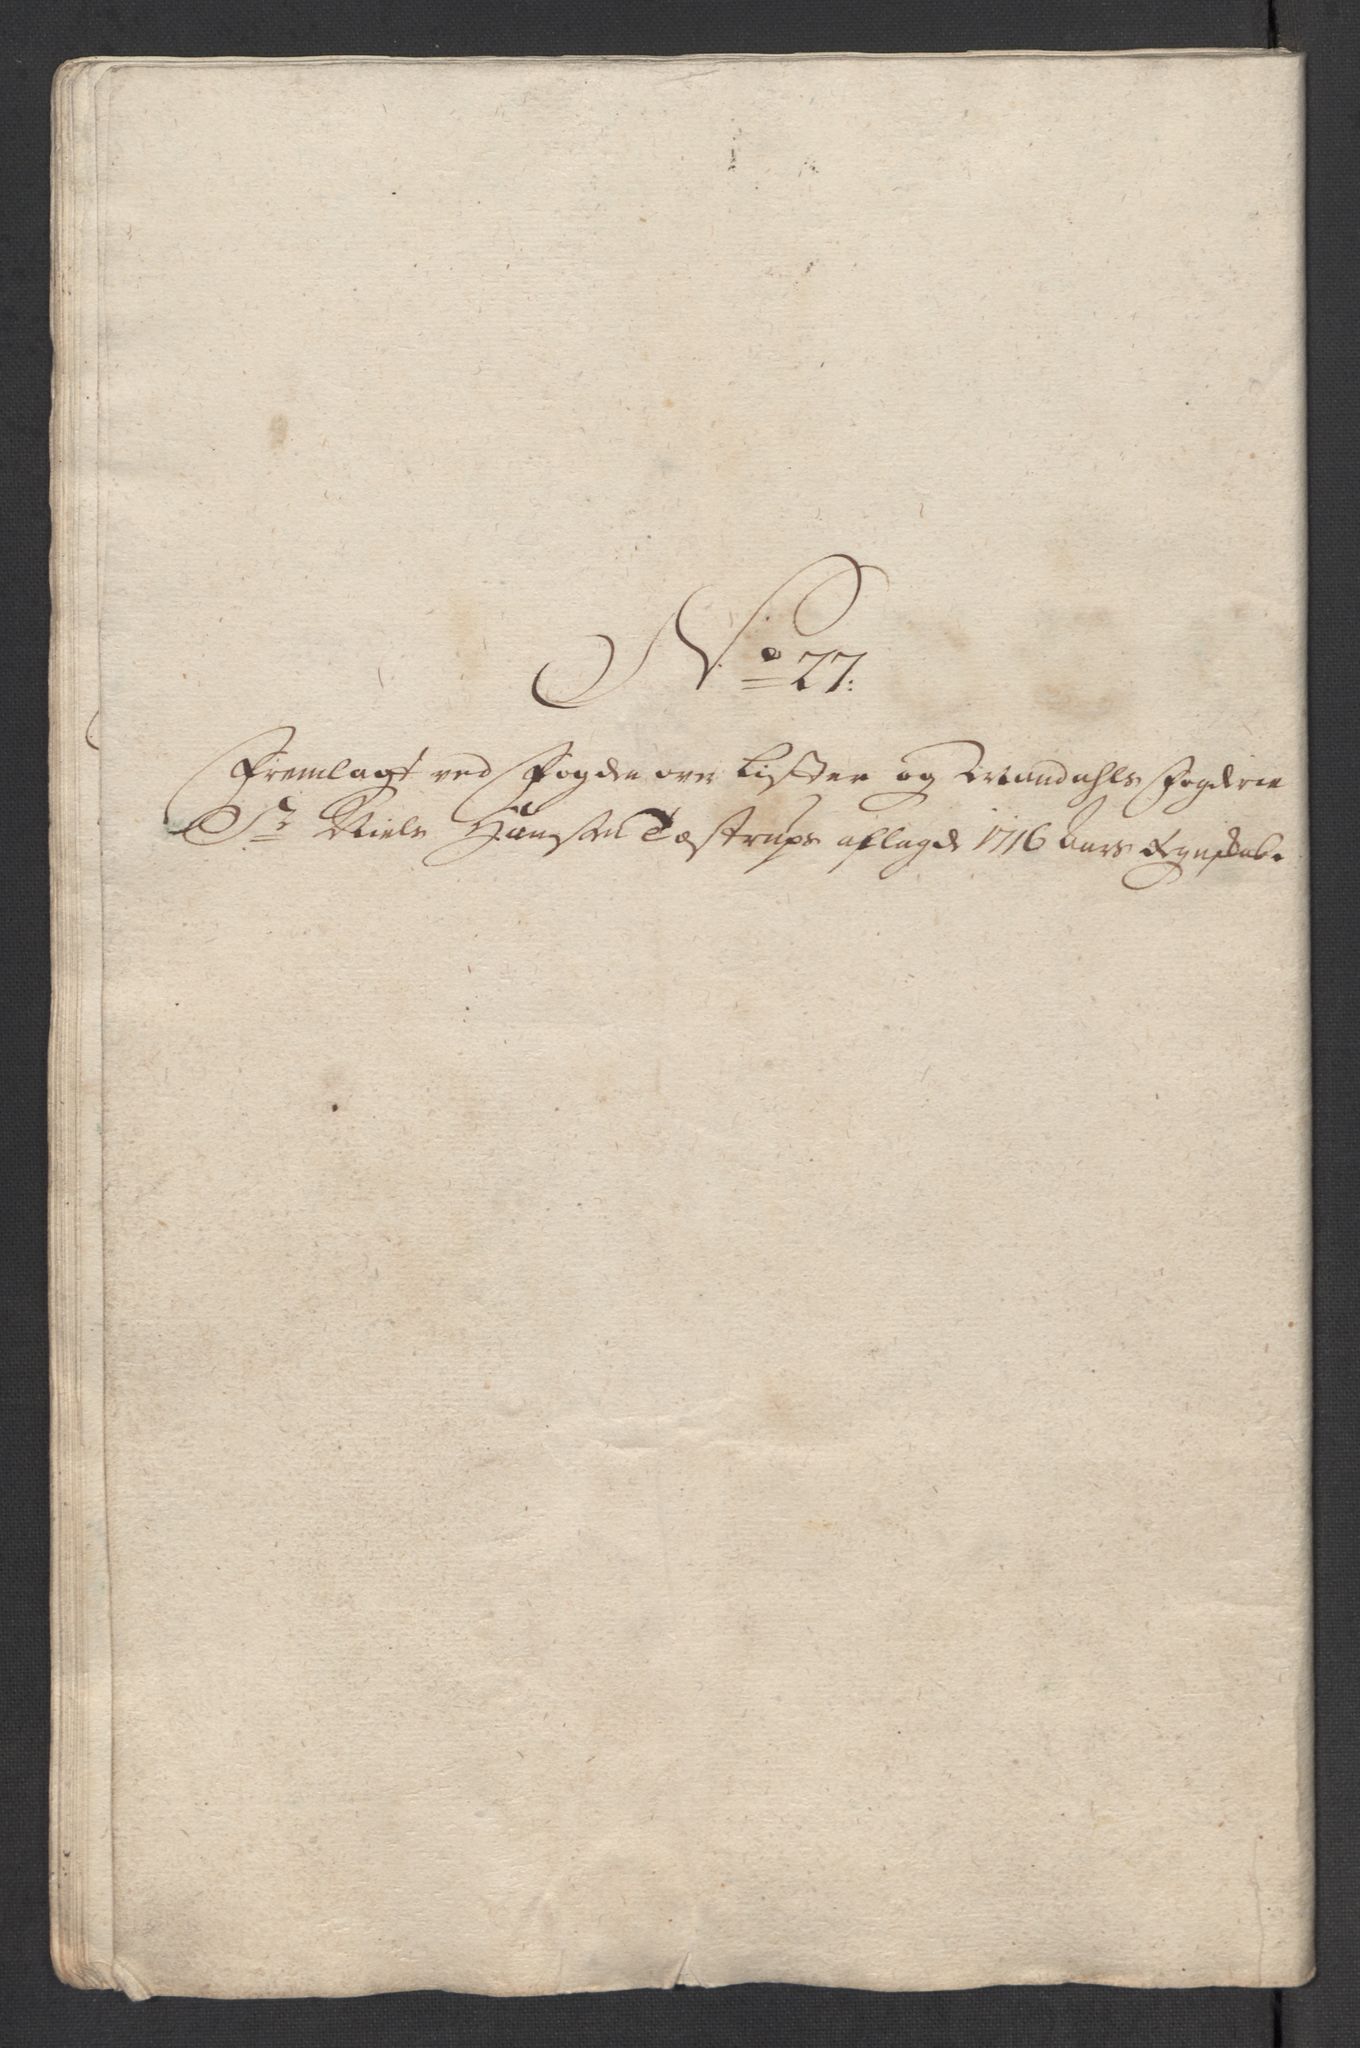 No 27:
Fremlagt ved Fogden over Lister og Mandahls Fogderie
Sr Niels Hansen Tæstrups aflagde 1716 Aars Regnskab.